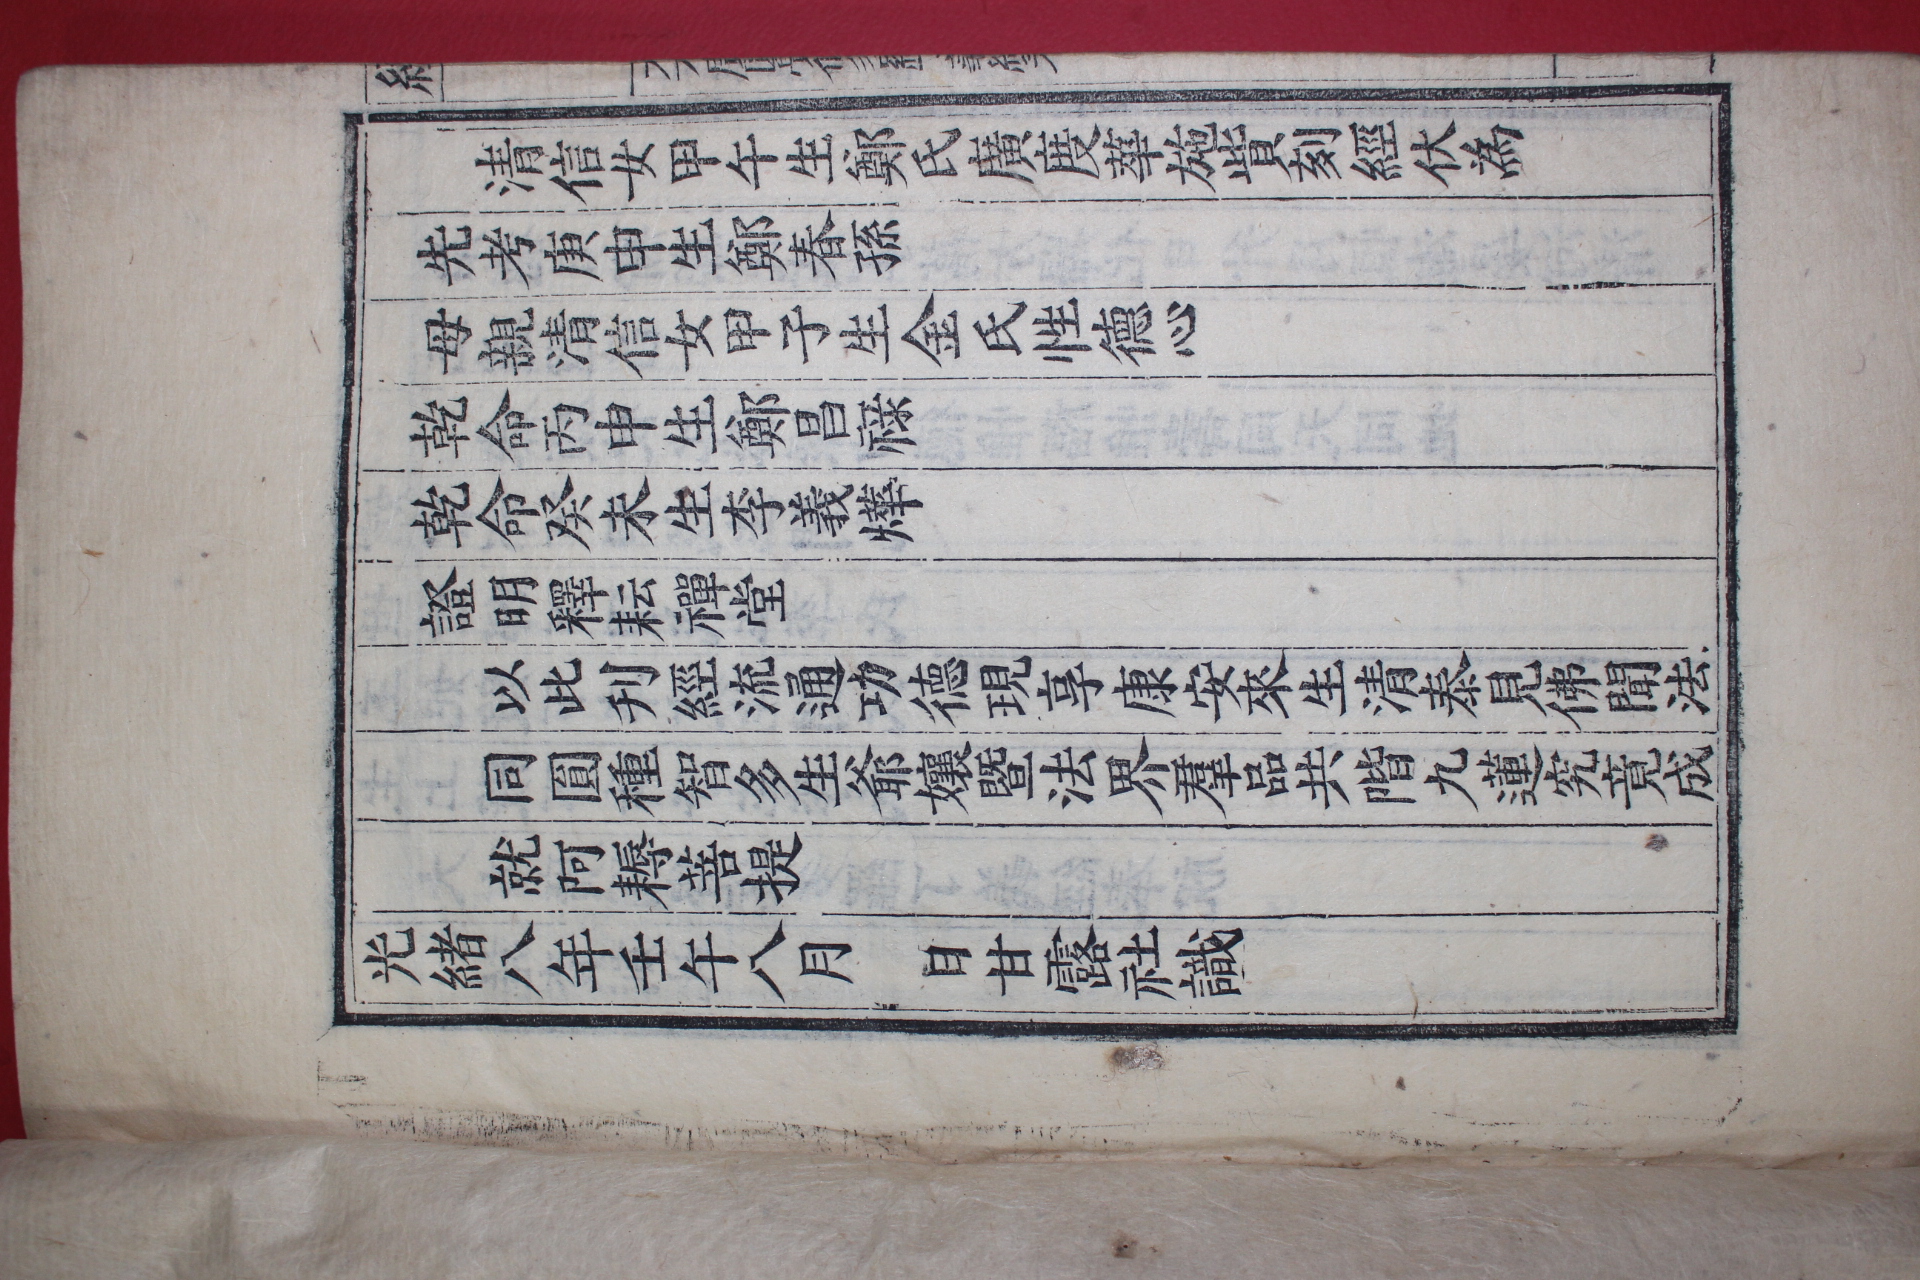 清信女甲午生鄭氏廣度華施貲刻經伏為
先考庚申生鄭春孫
母親清信女甲子生金氏性德心
乾命丙申生鄭昌祿
乾命癸未生李義燁
證明釋耘禪堂
以此刊經流通功德現享康安來生清泰見佛聞法
同圓種智多生爺孃暨法界羣品共階九蓮究竟成
就阿耨菩提
光緒八年壬午八月 日甘露社識